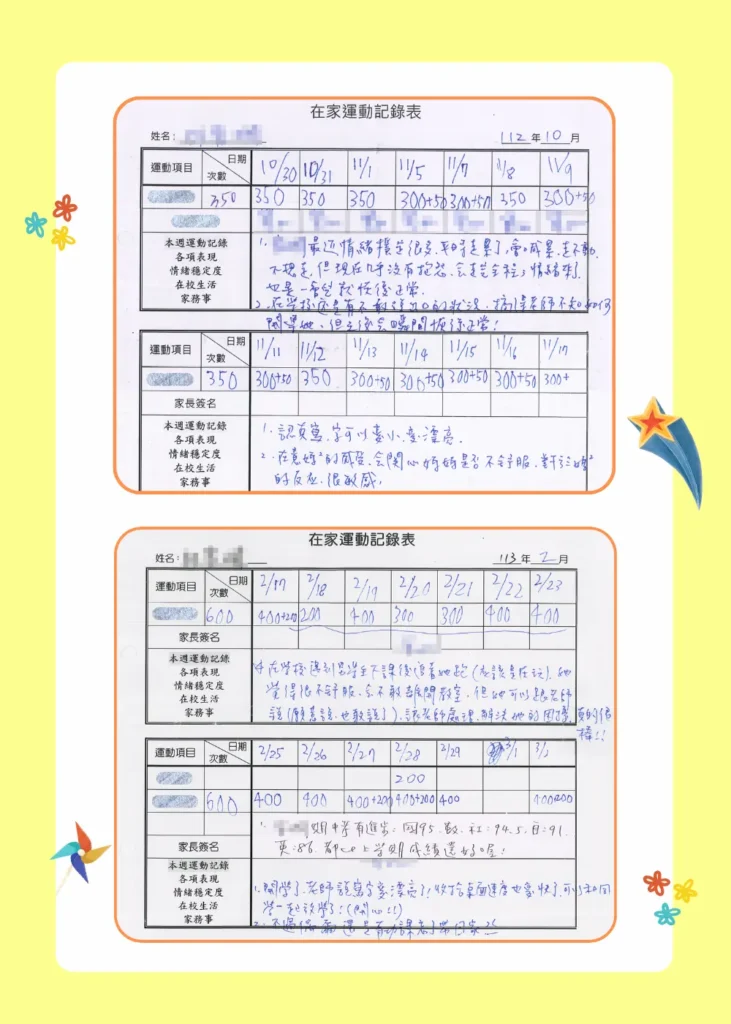 在家運動記錄表
姓名: 112 年 10 月
運動項目 日期 次數 10/30 10/31 11/1 11/5 11/7 11/8 11/9
350 350 350 350 300+50 300+50 350 300+50
本週運動記錄
各項表現
情緒穩定度
在校生活
家務事
1. 最近情緒穩定很多,平時走累了,會 感累,走不動,
不想走,但現在幾乎沒有抱怨,會走完全程,情緒來了,
也是一會兒就恢復正常.
2. 在學校還是有不敢 的狀況, 老師不知如何
開導她,但之後會瞬間恢復正常!
運動項目 日期 次數 11/11 11/12 11/13 11/14 11/15 11/16 11/17
350 300+50 350 300+50 300+50 300+50 300+50 300+
家長簽名
本週運動記錄
各項表現
情緒穩定度
在校生活
家務事
1. 認真寫,字可以變小,變漂亮.
2. 在意媽²的感受,會關心媽媽是否不舒服,對於媽²
的反應,很敏感,
在家運動記錄表
姓名: 113 年 2 月
運動項目 日期 次數 2/17 2/18 2/19 2/20 2/21 2/22 2/23
600 400+200 200 400 300 300 400 400
家長簽名
本週運動記錄
各項表現
情緒穩定度
在校生活
家務事
在學校遇到男學生下課後追著她跑(應該是在玩),她
覺得很不舒服,会不敢離開教室,但她可以跟老師
說(願意說,也敢說了),讓老師處理,解決她的困擾,真的很
棒!!
運動項目 日期 次數 2/25 2/26 2/27 2/28 2/29 3/1 3/2
200
600 400 400 400+200 400+200 400 400+200
1. 期中考有進步:國95.數. 社:94.5.自:91.
英:86.都比上學期成績還好喔!
家長簽名
本週運動記錄
各項表現
情緒穩定度
在校生活
家務事
1. 開學了,老師說寫字變漂亮了!收拾桌面速度也變快了,可以和同
學一起放學了!(開心!!)
2. 不過 還是有功課 帶回家!!